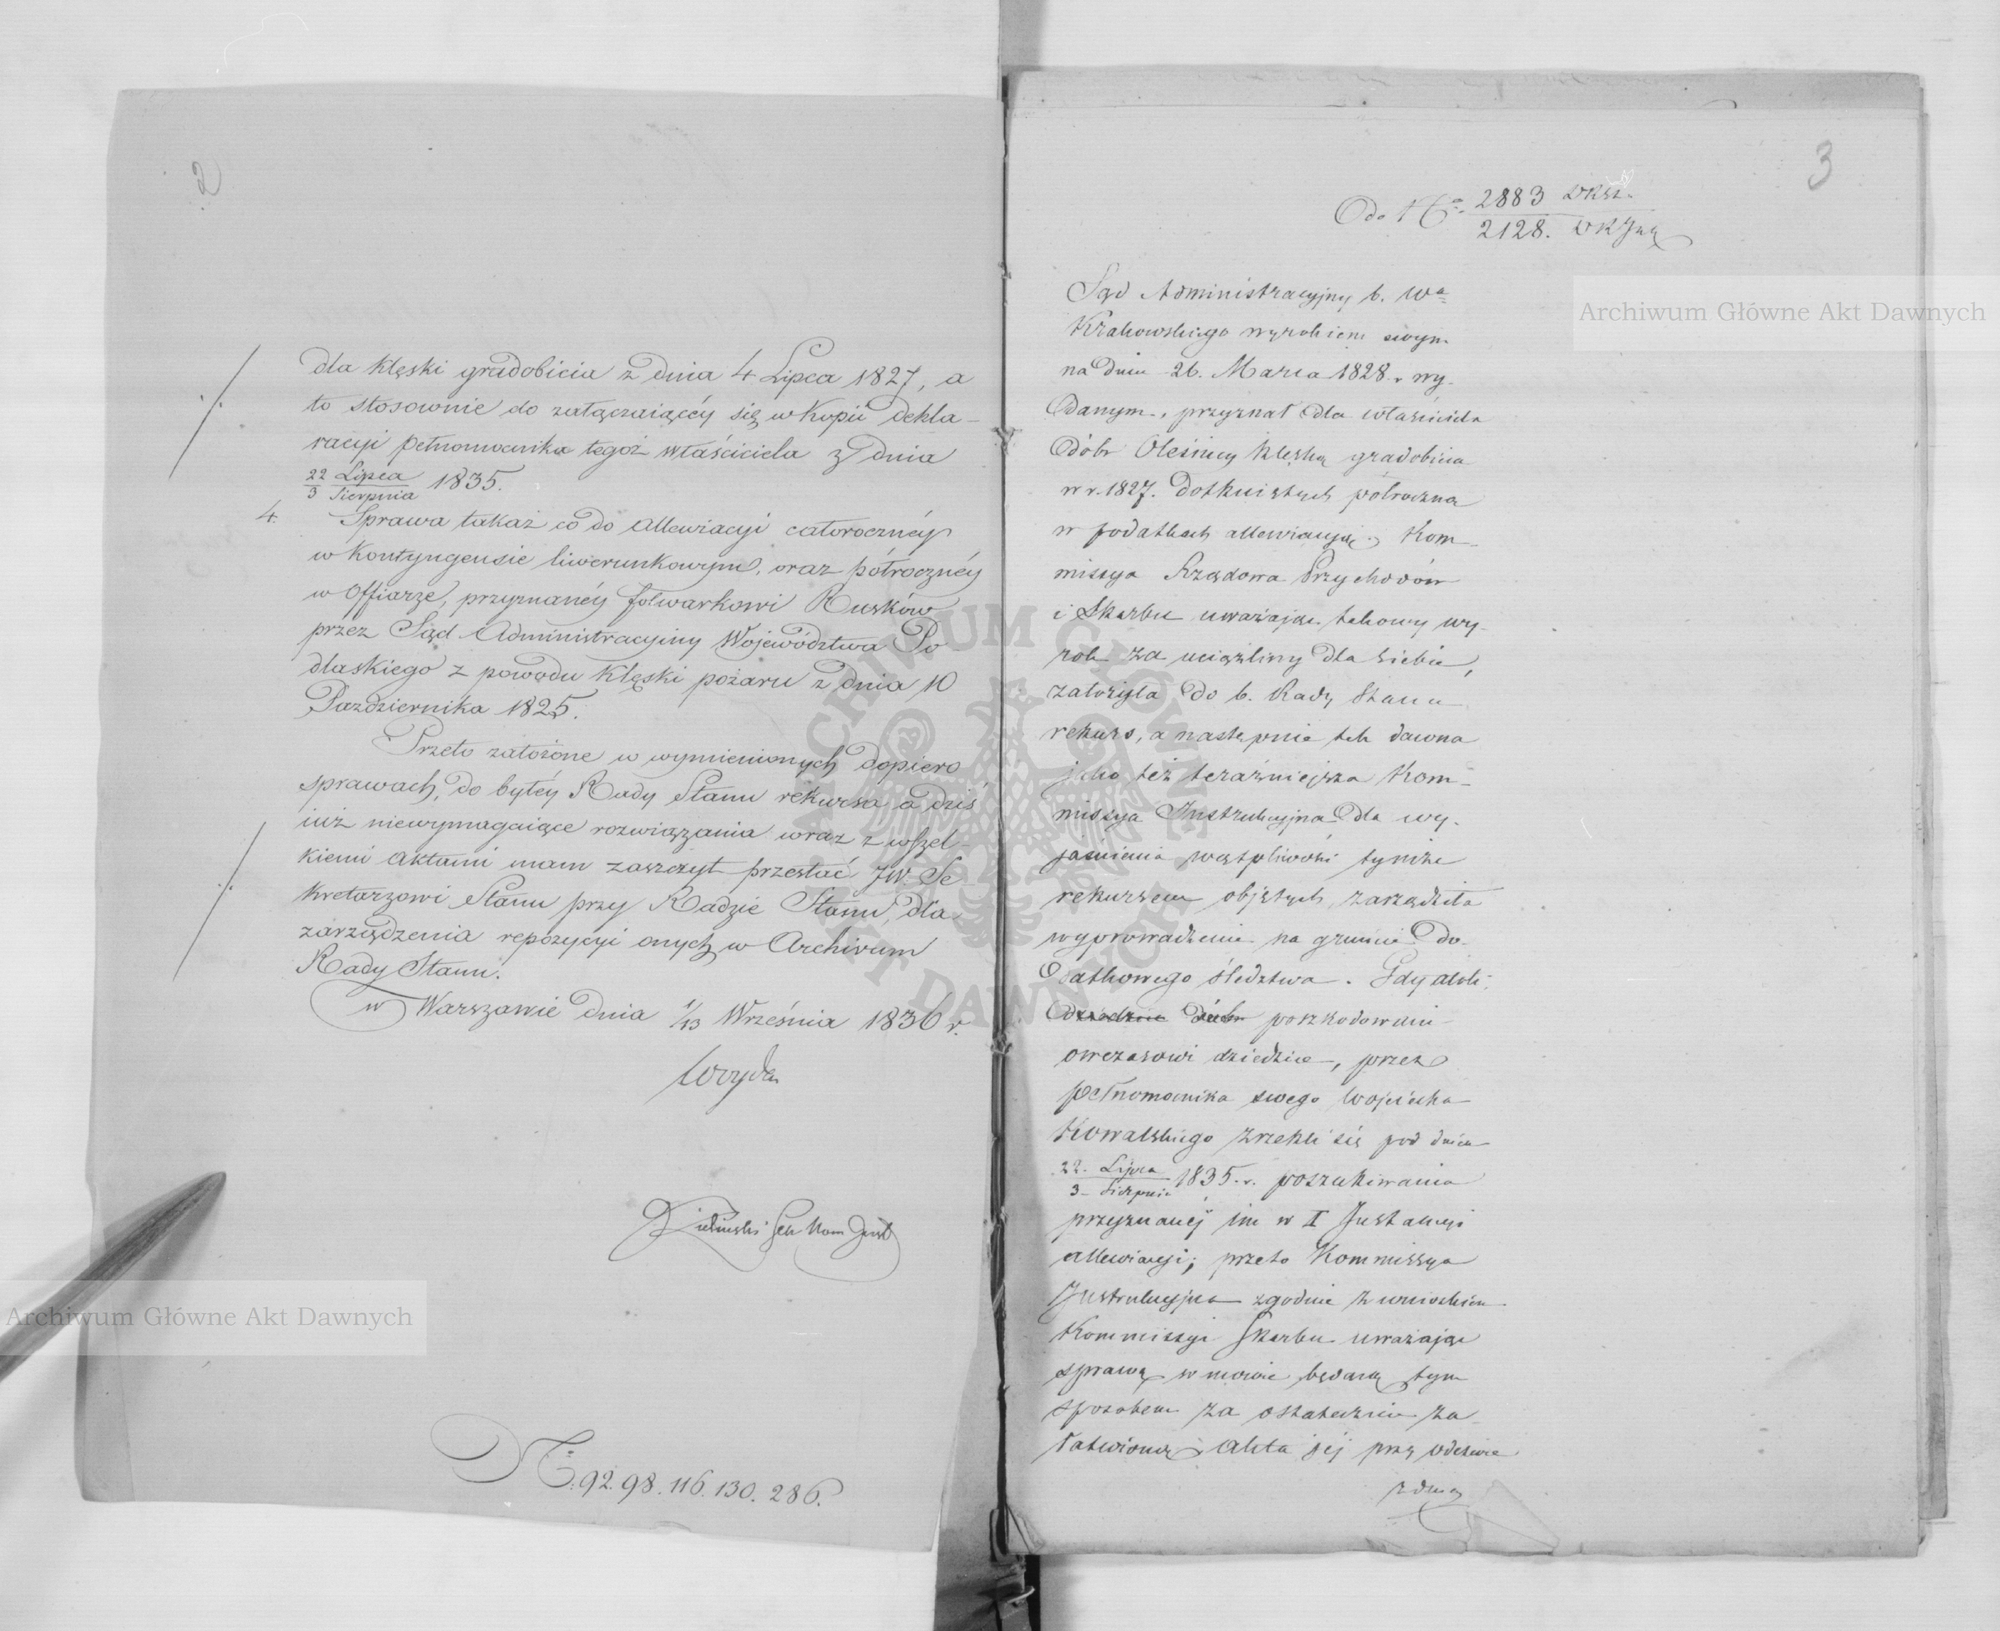 2
dla klęski gradobicia z dnia 4 Lipca 1827, a
to stosownie do załączaiącéy się w kopii dekla-
racyi pełnomocnika tegoż właściciela z dnia
22 Lipca / 3 Sierpnia 1835.
4. Sprawa takaż co do allewiacyi całorocznéy
w kontyngensie liwerunkowym, oraz półrocznéy
w offiarze, przyznanéy folwarkowi Rusków
przez Sąd Administracyiny Województwa Po
dlaskiego z powodu klęski pożaru z dnia 10
Października 1825.
Przeto założone w wymienionych dopiero
sprawach, do byłéy Rady Stanu rekursa a dziś
iuż niewymagaiące rozwiązania wraz z wszel-
kiemi aktami mam zaszczyt przesłać JW. Se
kretarzowi Stanu przy Radzie Stanu, dla
zarządzenia repozycyi onych w Archivum
Rady Stanu.
w Warszawie dnia 1/13 Września 1836 r.
Woyda
Sek Kom Inst
No. 92. 98. 116. 130. 286.
3
Do No. 2883 / 2128.
Sąd Administracyjny b. Wa
Krakowskiego wyrokiem swym
na dniu 26. Marca 1828. r wy-
danym, przyznał dla właściciela
dóbr Oleśnicy klęską gradobicia
w r. 1827. dotkniętych półroczną
w podatkach allewiacyę. Kom-
missya Rządowa Przychodów
i Skarbu uważając takowy wy-
rok za uciążliwy dla siebie,
założyła do b. Rady Stanu
rekurs, a następnie tak dawna
jako też teraźniejsza Kom-
missya Instrukcyjna dla wy-
jaśnienia wątpliwości tymże
rekursem objętych, zarządziła
wyprowadzenie na gruncie do-
datkowego śledztwa. Gdy atoli
dziedzice dóbr poszkodowani
owczasowi dziedzice, przez
pełnomocnika swego Wojciecha
Kowalskiego zrzekli się pod dniem
22. Lipca / 3 Sierpnia 1835. r. poszukiwania
przyznanéj im w I Instancyi
allewiacyi; przeto Kommissya
Instrukcyjna zgodnie z wnioskiem
Kommissyi Skarbu uważając
sprawę w mowie będącą tym
sposobem za ostatecznie za-
łatwioną, akta jéj przy odezwie
z dnia
Archiwum Główne Akt Dawnych
Archiwum Główne Akt Dawnych
ARCHIWUM GŁÓWNE AKT DAWNYCH